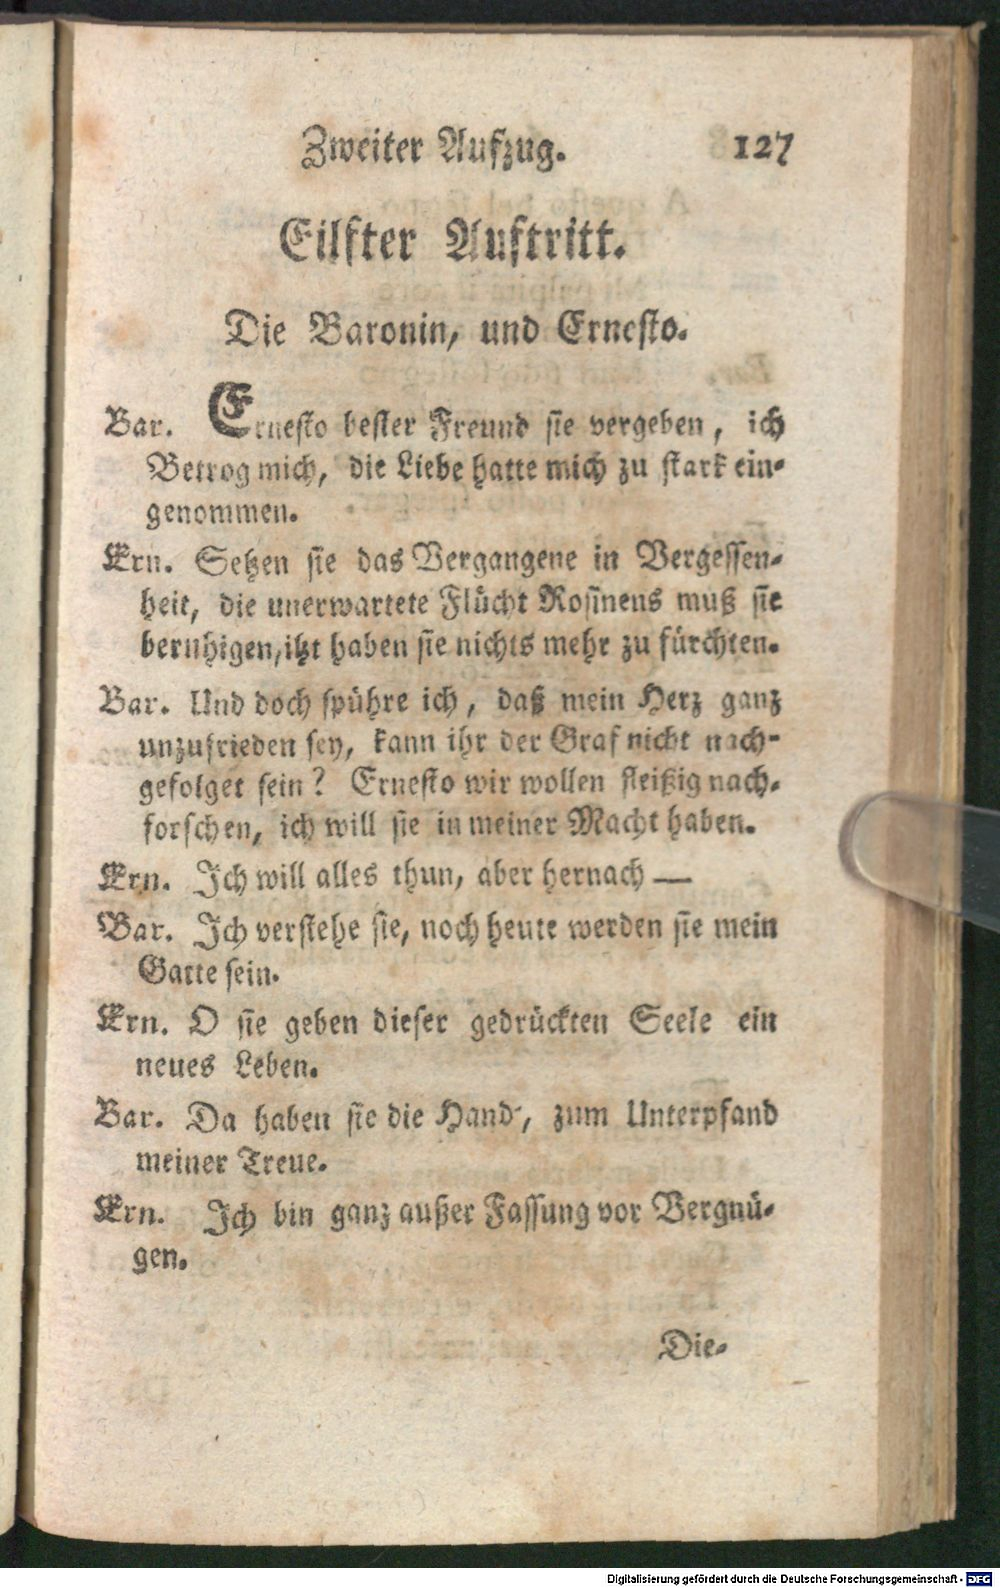 Zweiter Aufzug. 127
Eilfter Auftritt.
Die Baronin, und Ernesto.
Bar. Ernesto bester Freund sie vergeben, ich
Betrog mich, die Liebe hatte mich zu stark ein-
genommen.
Ern. Setzen sie das Vergangene in Vergessen-
heit, die unerwartete Flücht Rosinens muß sie
beruhigen, itzt haben sie nichts mehr zu fürchten.
Bar. Und doch spühre ich, daß mein Herz ganz
unzufrieden sey, kann ihr der Graf nicht nach-
gefolget sein? Ernesto wir wollen fleißig nach-
forschen, ich will sie in meiner Macht haben.
Ern. Ich will alles thun, aber hernach —
Bar. Ich verstehe sie, noch heute werden sie mein
Gatte sein.
Ern. O sie geben dieser gedrückten Seele ein
neues Leben.
Bar. Da haben sie die Hand, zum Unterpfand
meiner Treue.
Ern. Ich bin ganz außer Fassung vor Vergnü-
gen.
Die-
Digitalisierung gefördert durch die Deutsche Forschungsgemeinschaft - DFG